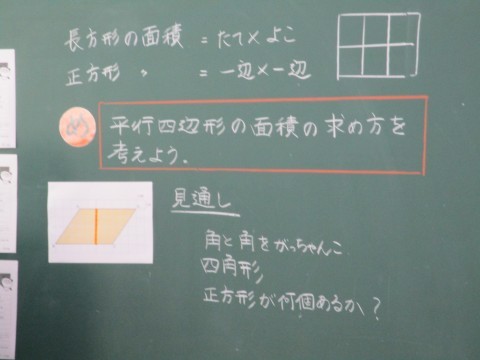 長方形の面積 = たて×よこ
正方形 〃 = 一辺×一辺
め 平行四辺形の面積の求め方を
考えよう.
見通し
角と角をがっちゃんこ
四角形
正方形が何個あるか?